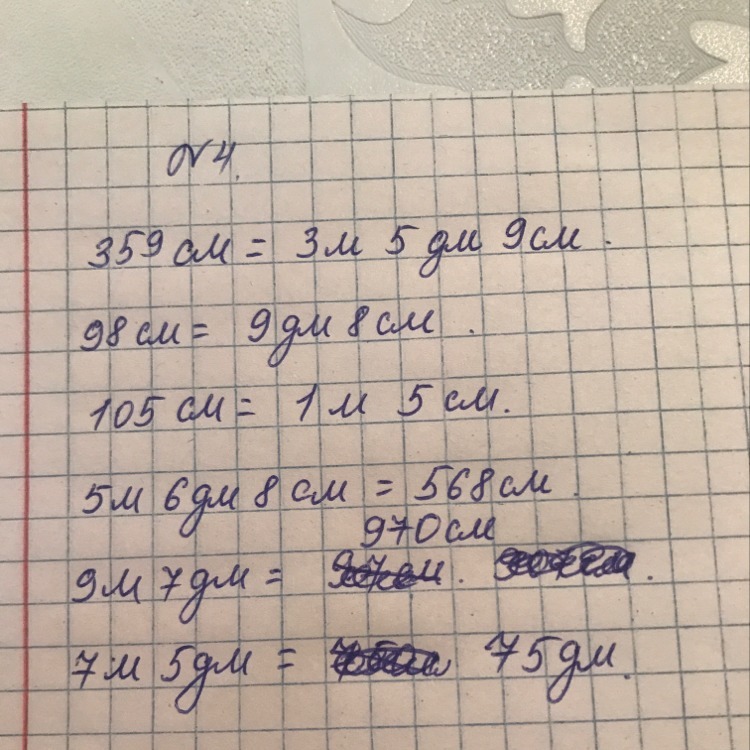 №4.
359 см = 3 м 5 дм 9 см.
98 см = 9 дм 8 см.
105 см = 1 м 5 см.
5 м 6 дм 8 см = 568 см.
970 см
9 м 7 дм = .  .
7 м 5 дм = 75 дм.